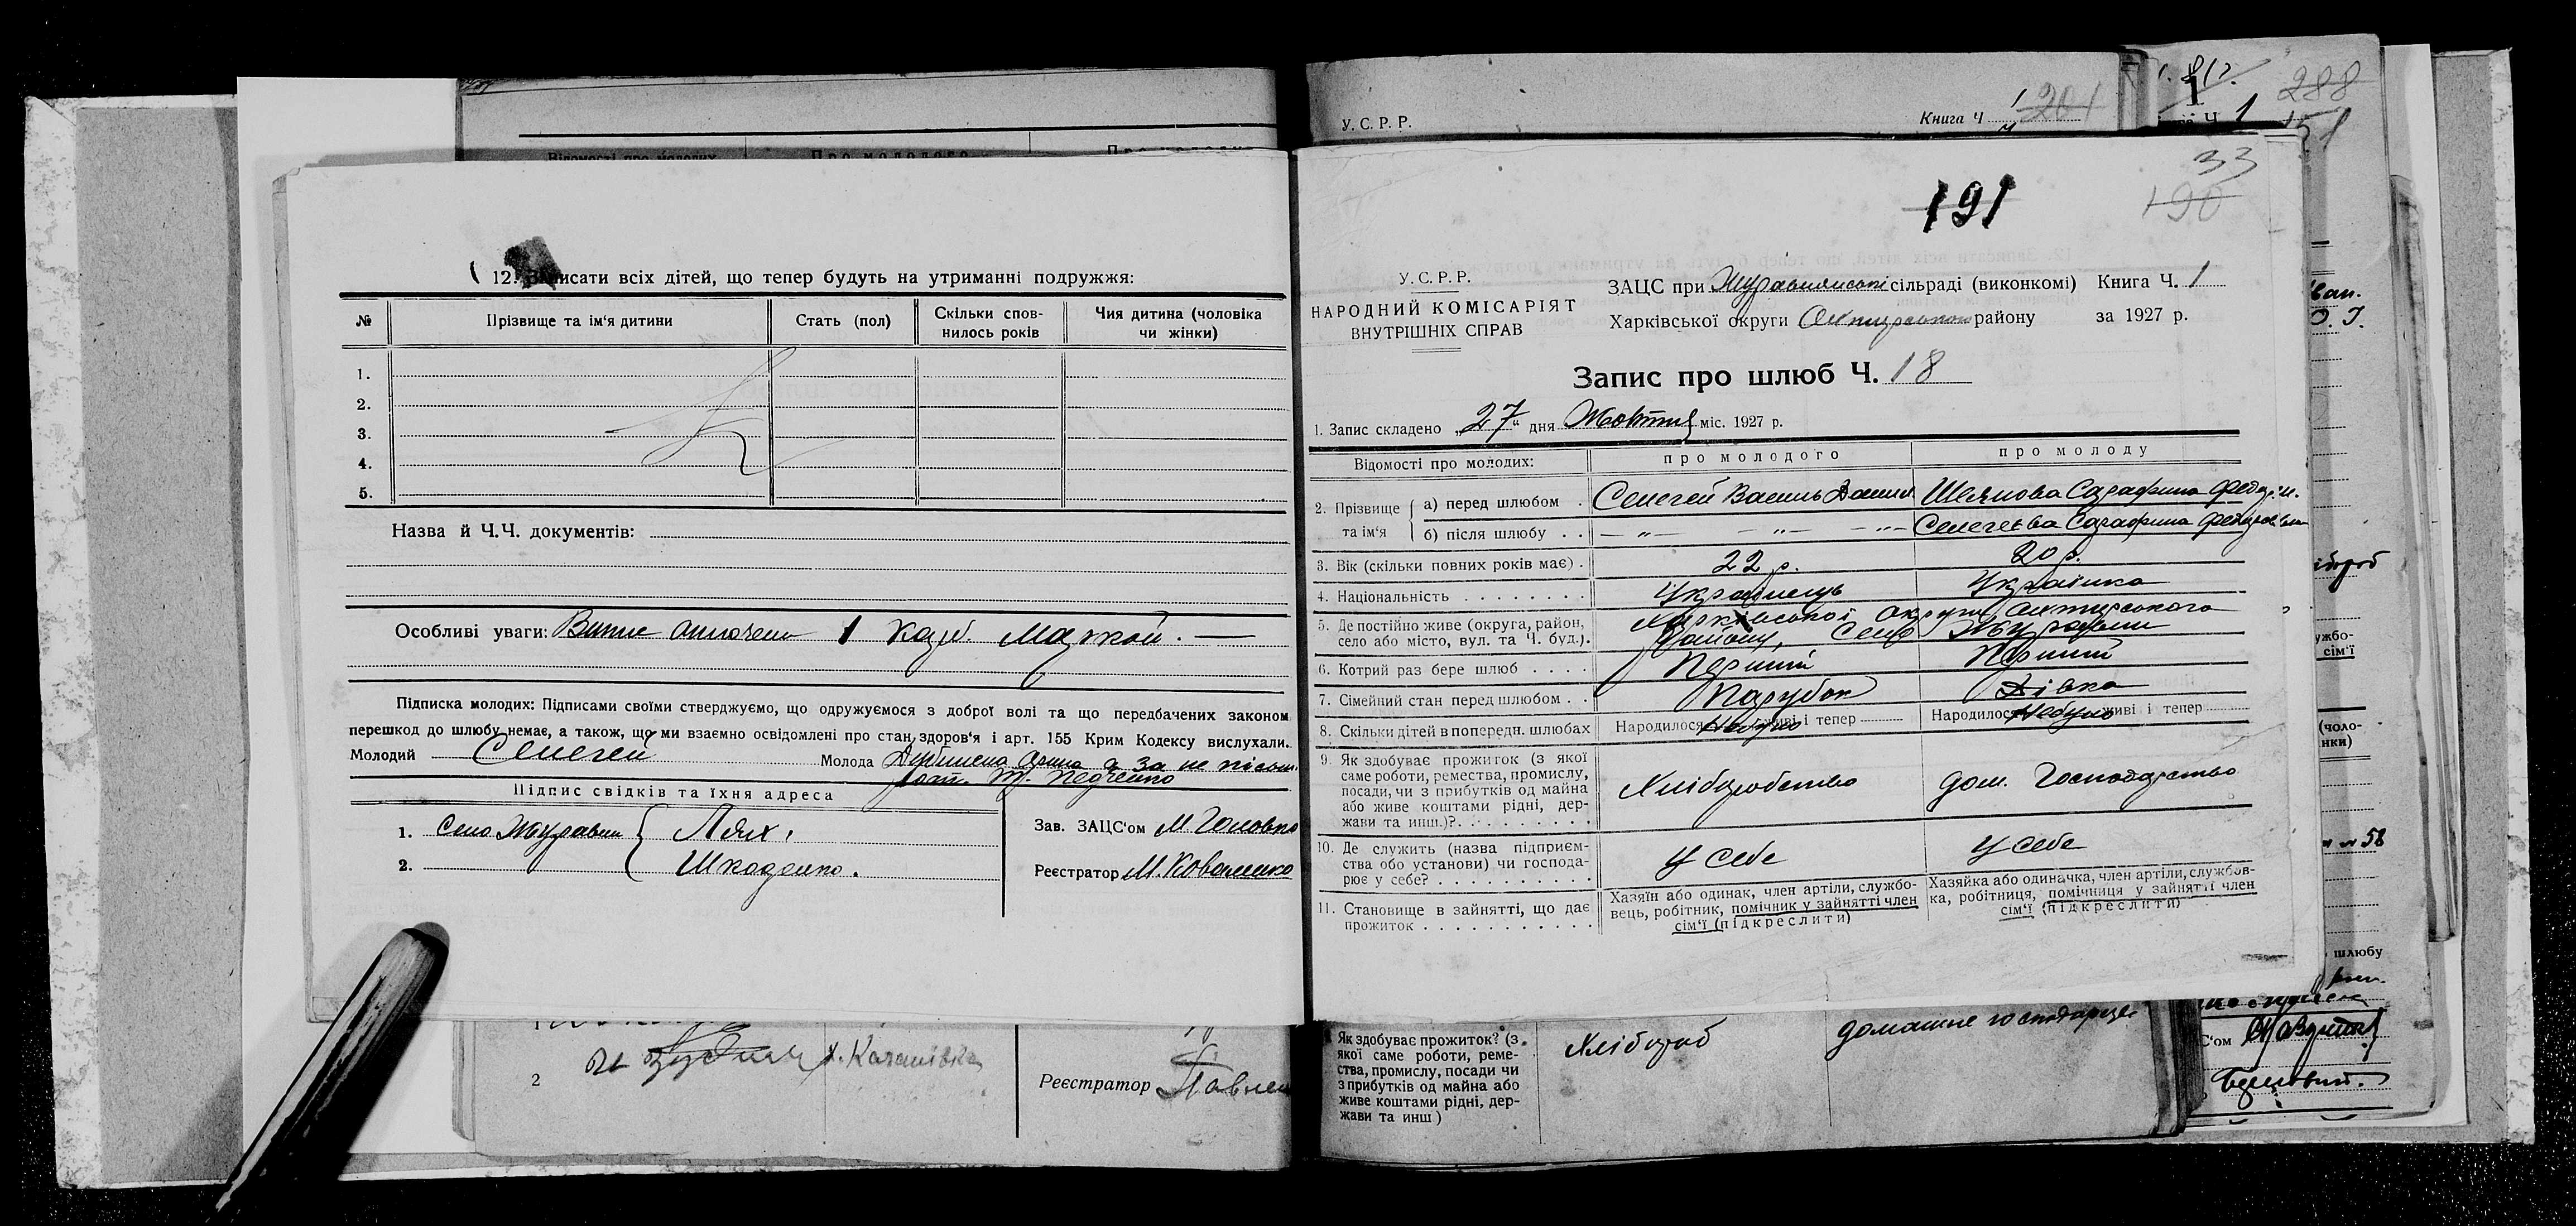 12. Записати всіх дітей, що тепер будуть на утриманні подружжя:
№ Прізвище та ім'я дитини Стать (пол) Скільки спов-нилось років Чия дитина (чоловіка чи жінки)
1.
2.
3.
4.
5.
Назва й Ч.Ч. документів:
Особливі уваги: 1 карб. Маркой. —
Підписка молодих: Підписами своїми стверджуємо, що одружуємося з доброї волі та що передбачених законом
перешкод до шлюбу немає, а також, що ми взаємно освідомлені про стан здоров'я і арт. 155 Крим Кодексу вислухали.
Молодий Селегей Молода а за не письм.
Підпис свідків та їхня адреса
1. Село Журавни Лях.
2. Шкаденко.
Зав. ЗАЦС'ом М Головко
Реєстратор М. Коваленко
2 х. Казанівка
Реєстратор Павлен
У. С. Р. Р. Книга Ч 1 201
288
Ч 1
33
191
190
У. С. Р. Р.
НАРОДНИЙ КОМІСАРІЯТ
ВНУТРІШНІХ СПРАВ
ЗАЦС при Журавнянські сільраді (виконкомі) Книга Ч. 1
Харківської округи Охтирського району за 1927 р.
Запис про шлюб Ч. 18
1. Запис складено „27" дня Жовтня міс. 1927 р.
Відомості про молодих: про молодого про молоду
2. Прізвище та ім'я
а) перед шлюбом . Селегей Василь Данил Шеянова Сарафина Федор.
б) після шлюбу . . — „ — — „ — — „ — Селегеєва Сарафина Федоровна
3. Вік (скільки повних років має) . 22 р. 20 р.
4. Національність . . . . . . . . Українець Українка
5. Де постійно живе (округа, район, село або місто, вул. та Ч. буд.). Харківської округи Охтирського
району, Село Журавни
6. Котрий раз бере шлюб . . . . Перший Перший
7. Сімейний стан перед шлюбом . . Парубок Дівка
8. Скільки дітей в попередн. шлюбах Народилося Небуло живі і тепер Народилося Небуло живі і тепер
9. Як здобуває прожиток (з якої
саме роботи, ремества, промислу,
посади, чи з прибутків од майна
або живе коштами рідні, дер-
жави та инш.)?. . . . . . . . . Хліборобство дом. Господарство
10. Де служить (назва підприєм-
ства обо установи) чи господа-
рює у себе? . . . . . . . . . . У себе У себе
11. Становище в зайнятті, що дає
прожиток . . . . . . . . . . .
Хазяїн або одинак, член артіли, службо-
вець, робітник, помічник у зайнятті член
сім'ї (підкреслити)
Хазяйка або одиначка, член артіли, службов-
ка, робітниця, помічниця у зайнятті член
сім'ї (підкреслити)
Як здобуває прожиток? (з
якої саме роботи, реме-
ства, промислу, посади чи
з прибутків од майна або
живе коштами рідні, дер-
жави та инш )
Хлібороб домашне господарцво